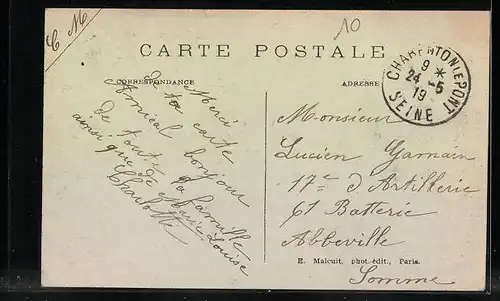 C M
10
CARTE POSTALE
CORRESPONDANCE
ADRESSE
CHARENTON LE PONT
9 *
24 - 5
19
SEINE
Merci
de ta carte
Amical bonjour
de toute la famille
ainsi que de Marie Louise
Charlotte
Monsieur
Lucien Gamain
17e d'Artillerie
61 Batterie
Abbeville
E. Malcuit, phot. édit., Paris.
Somme